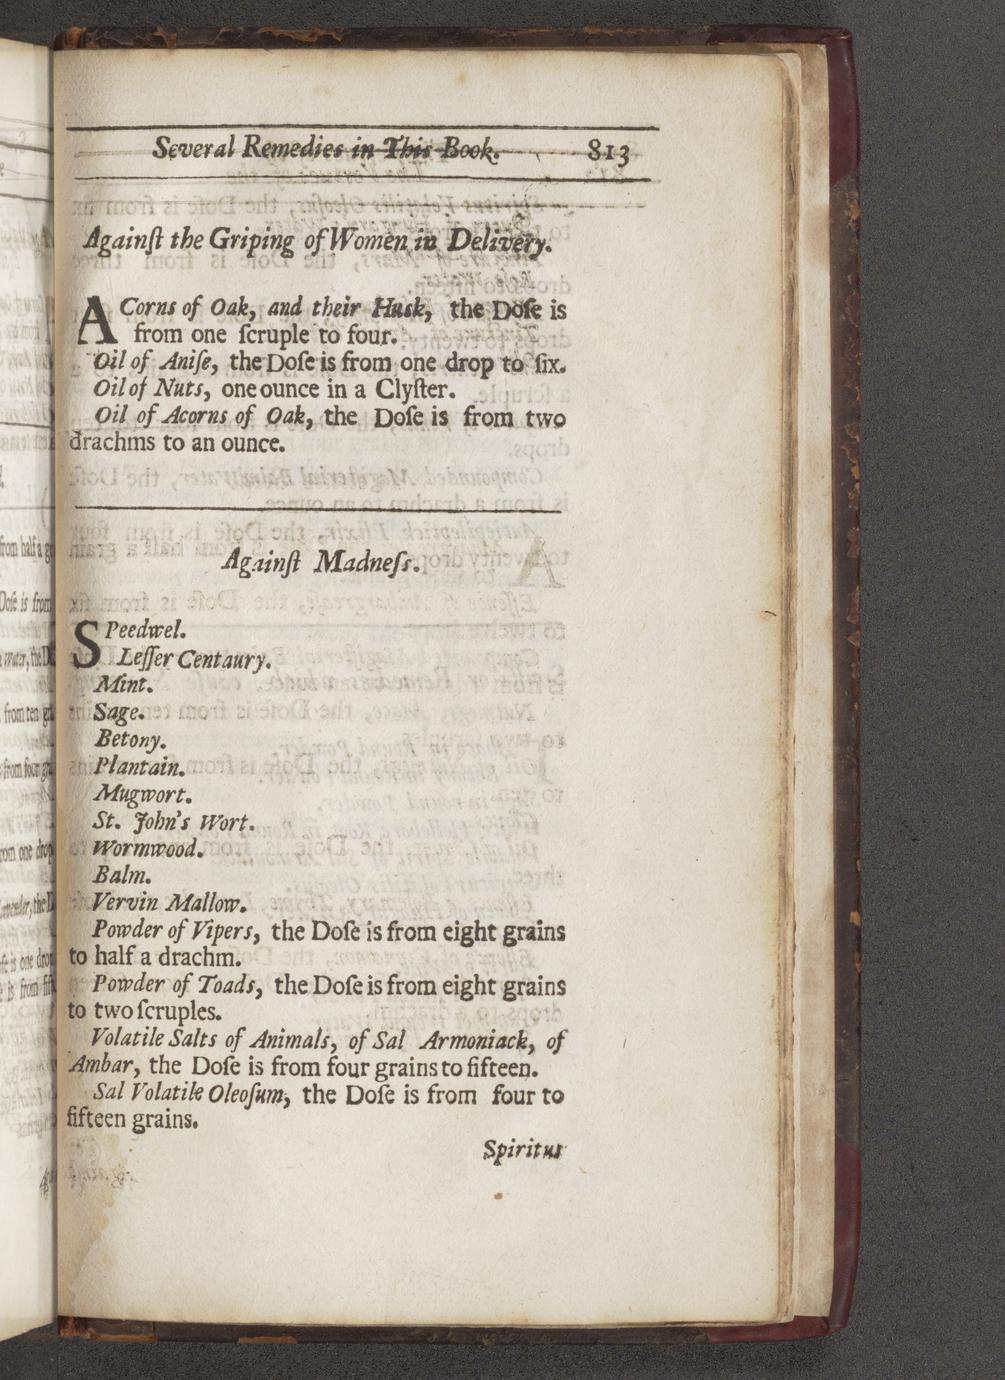 Several Remedies in This Book. 813
Againſt the Griping of Women in Delivery.
ACorns of Oak, and their Husk, the Doſe is
from one ſcruple to four.
Oil of Aniſe, the Doſe is from one drop to ſix.
Oil of Nuts, one ounce in a Clyſter.
Oil of Acorns of Oak, the Doſe is from two
drachms to an ounce.
Againſt Madneſs.
SPeedwel.
Leſſer Centaury.
Mint.
Sage.
Betony.
Plantain.
Mugwort.
St. John's Wort.
Wormwood.
Balm.
Vervin Mallow.
Powder of Vipers, the Doſe is from eight grains
to half a drachm.
Powder of Toads, the Doſe is from eight grains
to two ſcruples.
Volatile Salts of Animals, of Sal Armoniack, of
Ambar, the Doſe is from four grains to fifteen.
Sal Volatile Oleoſum, the Doſe is from four to
fifteen grains.
Spiritus